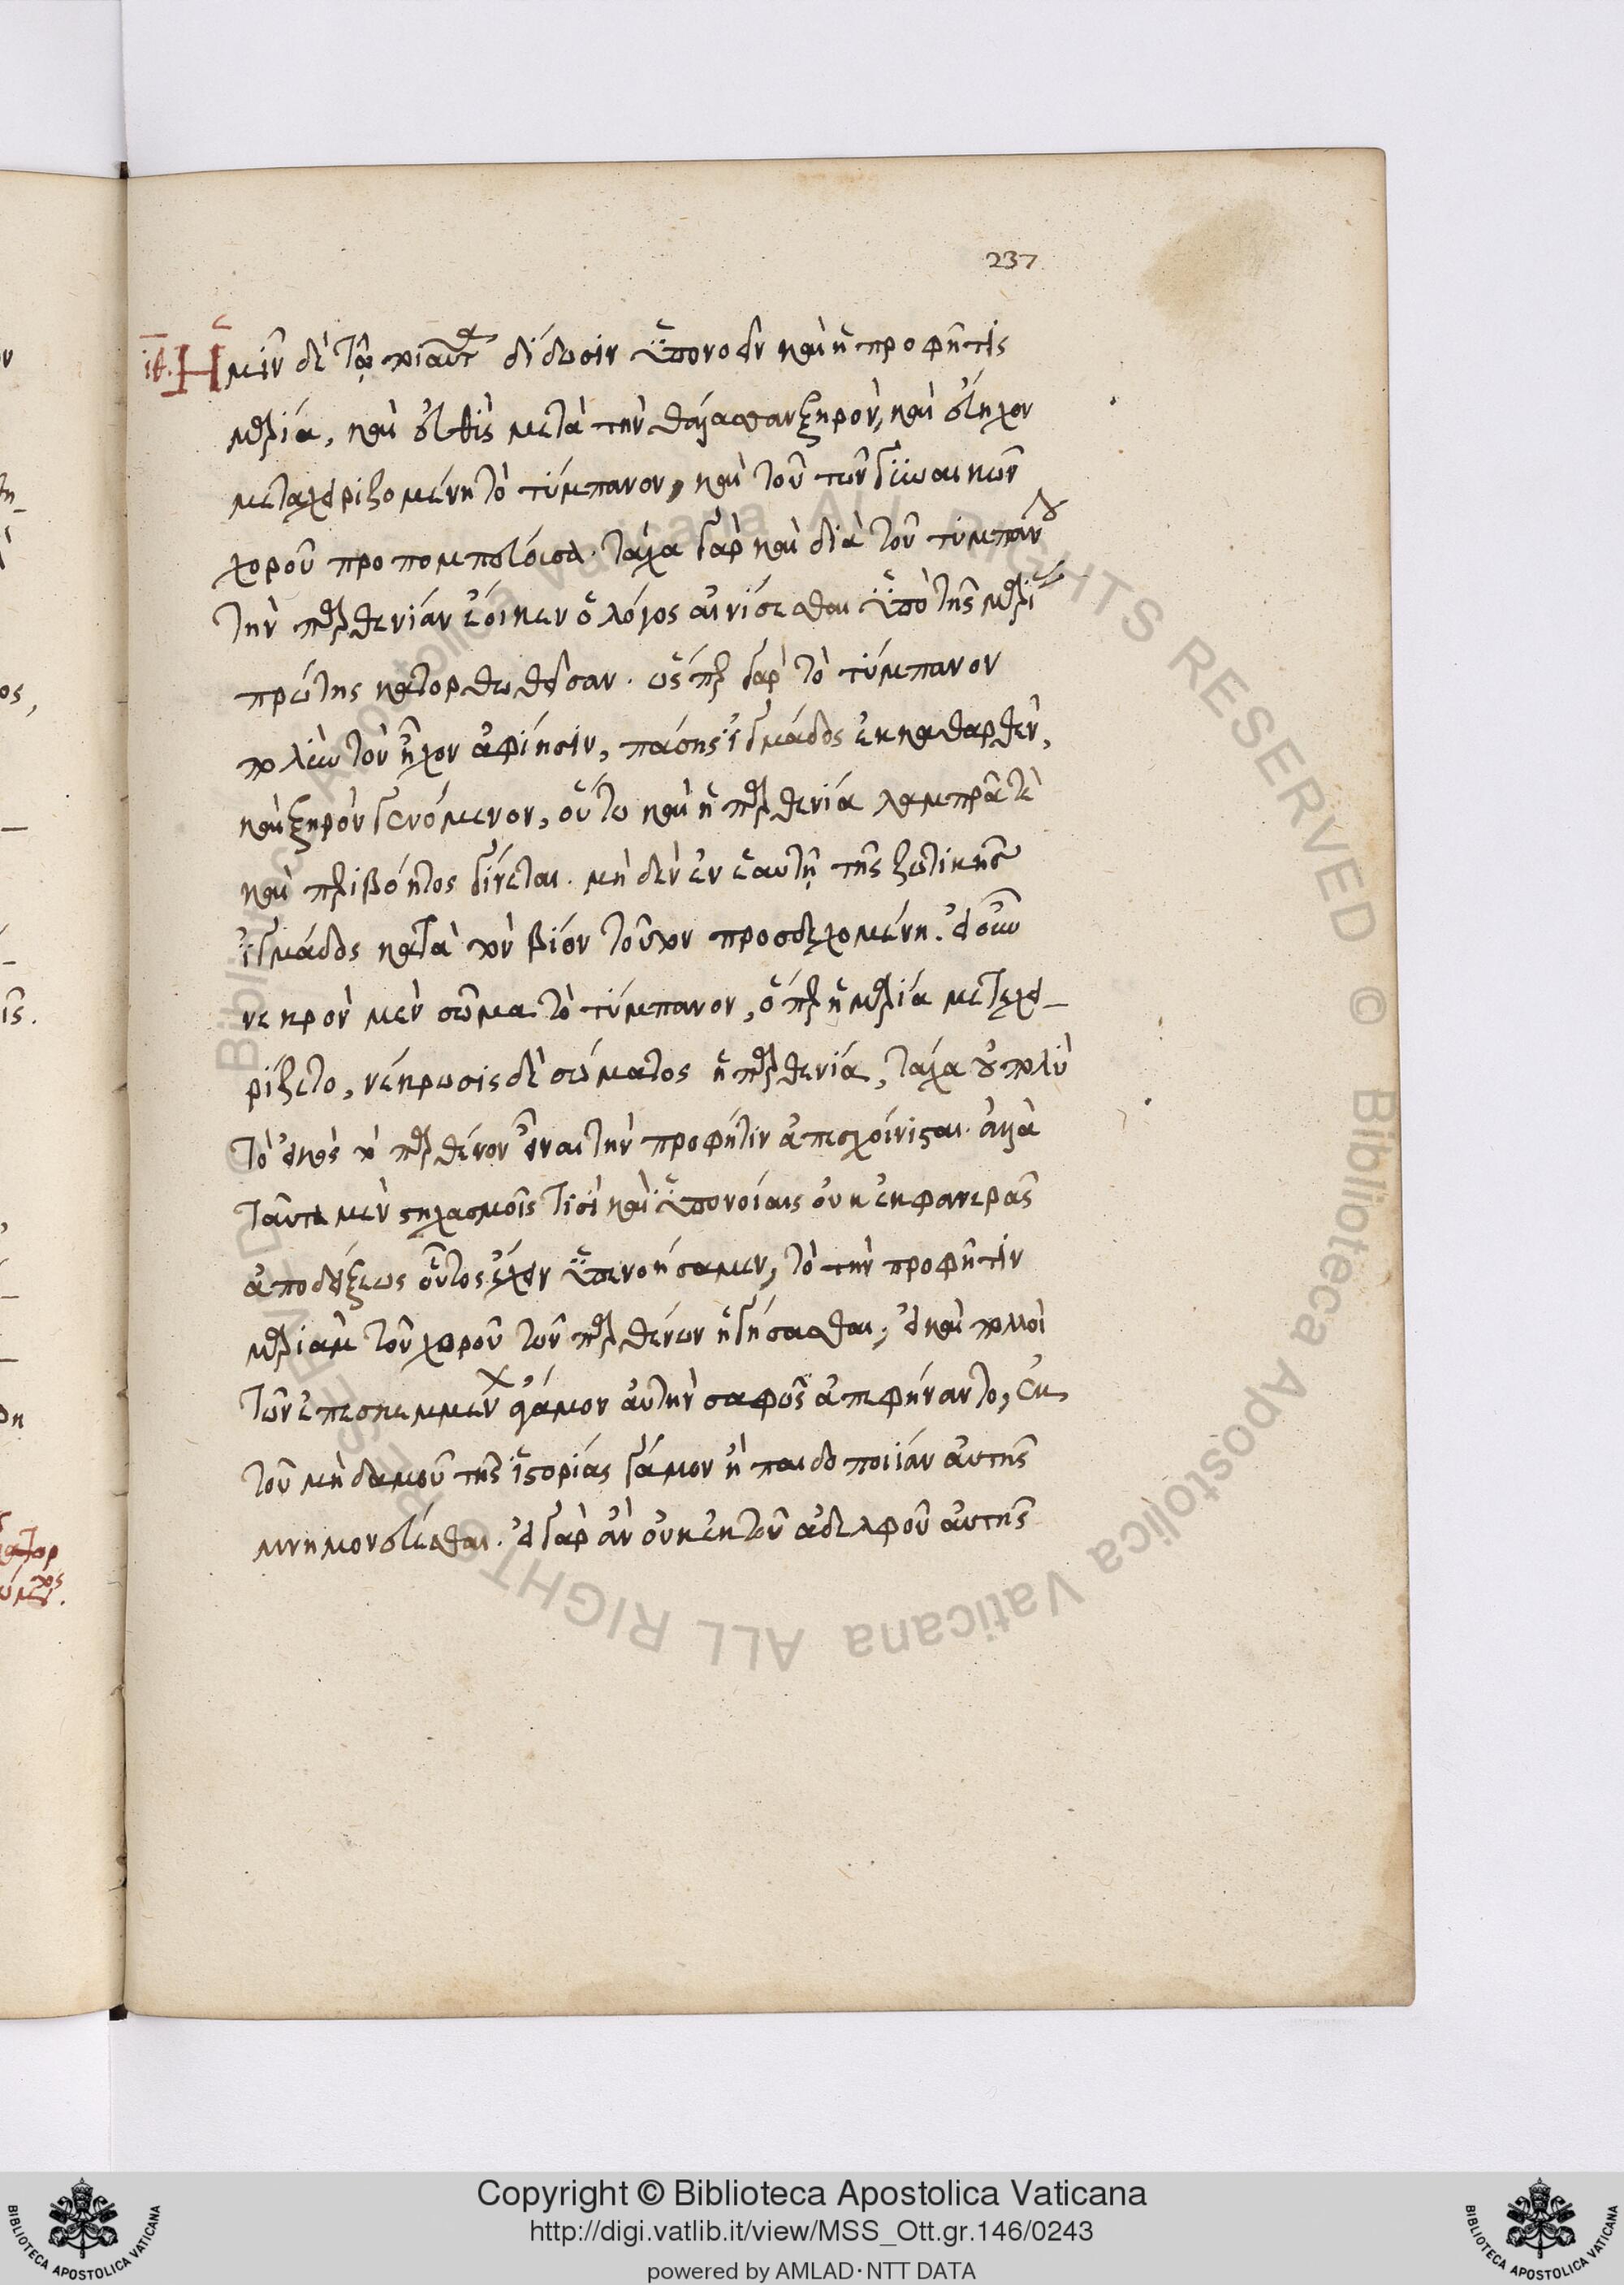 237
ιθ. Ἡμῖν δὲ τὰ τοιαῦτα δίδωσιν ὑπονοεῖν καὶ ἡ προφῆτις
μαρία, καὶ εὐθὺς μετὰ τὴν θάλασσαν ξηρὸν, καὶ εὔηχον
μεταχειριζομένη τὸ τύμπανον, καὶ τοῦ τῶν γυναικῶν
χοροῦ προπομπεύουσα. τάχα γὰρ καὶ διὰ τοῦ τυμπάνου
τὴν παρθενίαν ἔοικεν ὁ λόγος αἰνίσεσθαι ὑπὸ τῆς μαρίας
πρώτης κατορθωθεῖσαν. ὥσπερ γὰρ τὸ τύμπανον
πολὺν τὸν ἦχον ἀφίησιν, πάσης ἰκμάδος ἐκκαθαρθὲν,
καὶ ξηρὸν γενόμενον, οὕτω καὶ ἡ παρθενία λαμπρά τε
καὶ περιβόητος γίνεται. μηδὲν ἐν ἑαυτῇ τῆς ζωτικῆς
ἰκμάδος κατὰ τὸν βίον τοῦτον προσδεχομένη. εἰ οὖν
νεκρὸν μὲν σῶμα τὸ τύμπανον, ὅπερ ἡ μαρία μετεχει-
ρίζετο, νέκρωσις δὲ σώματος ἡ παρθενία, τάχα οὐ πολὺ
τὸ εἰκὸς τὸ παρθένον εἶναι τὴν προφῆτιν ἀπεσχοίνισται. ἀλλὰ
ταῦτα μὲν στηχασμοῖς τισὶ καὶ ὑπονοίαις οὐκ ἐκ φανερᾶς
ἀποδείξεως οὕτως ἔχειν ὑπενοήσαμεν, τὸ τὴν προφῆτιν
μαριὰμ τοῦ χοροῦ τῶν παρθένων ἡγήσασθαι, εἰ καὶ πολλοὶ
τῶν ἐπεσκεμμένων ἄγαμον αὐτὴν σαφῶς ἀπεφήναντο, ἐκ
τοῦ μηδαμοῦ τῆς ἱστορίας γάμον ἢ παιδοποιίαν αὐτῆς
μνημονεύεσθαι. εἰ γὰρ ἂν οὐκ ἐκ τοῦ ἀδελφοῦ αὐτῆς
Copyright © Biblioteca Apostolica Vaticana
http://digi.vatlib.it/view/MSS_Ott.gr.146/0243
powered by AMLAD·NTT DATA